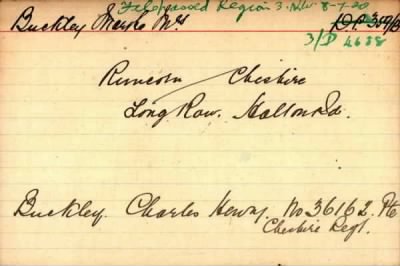 File passed Region 3. N.W. 8-1-20
Buckley Mrs.
3/D 4638
Runcorn Cheshire
Long Row. Halton Rd.
Buckley. Charles Henry No 36162. Pte
Cheshire Regt.